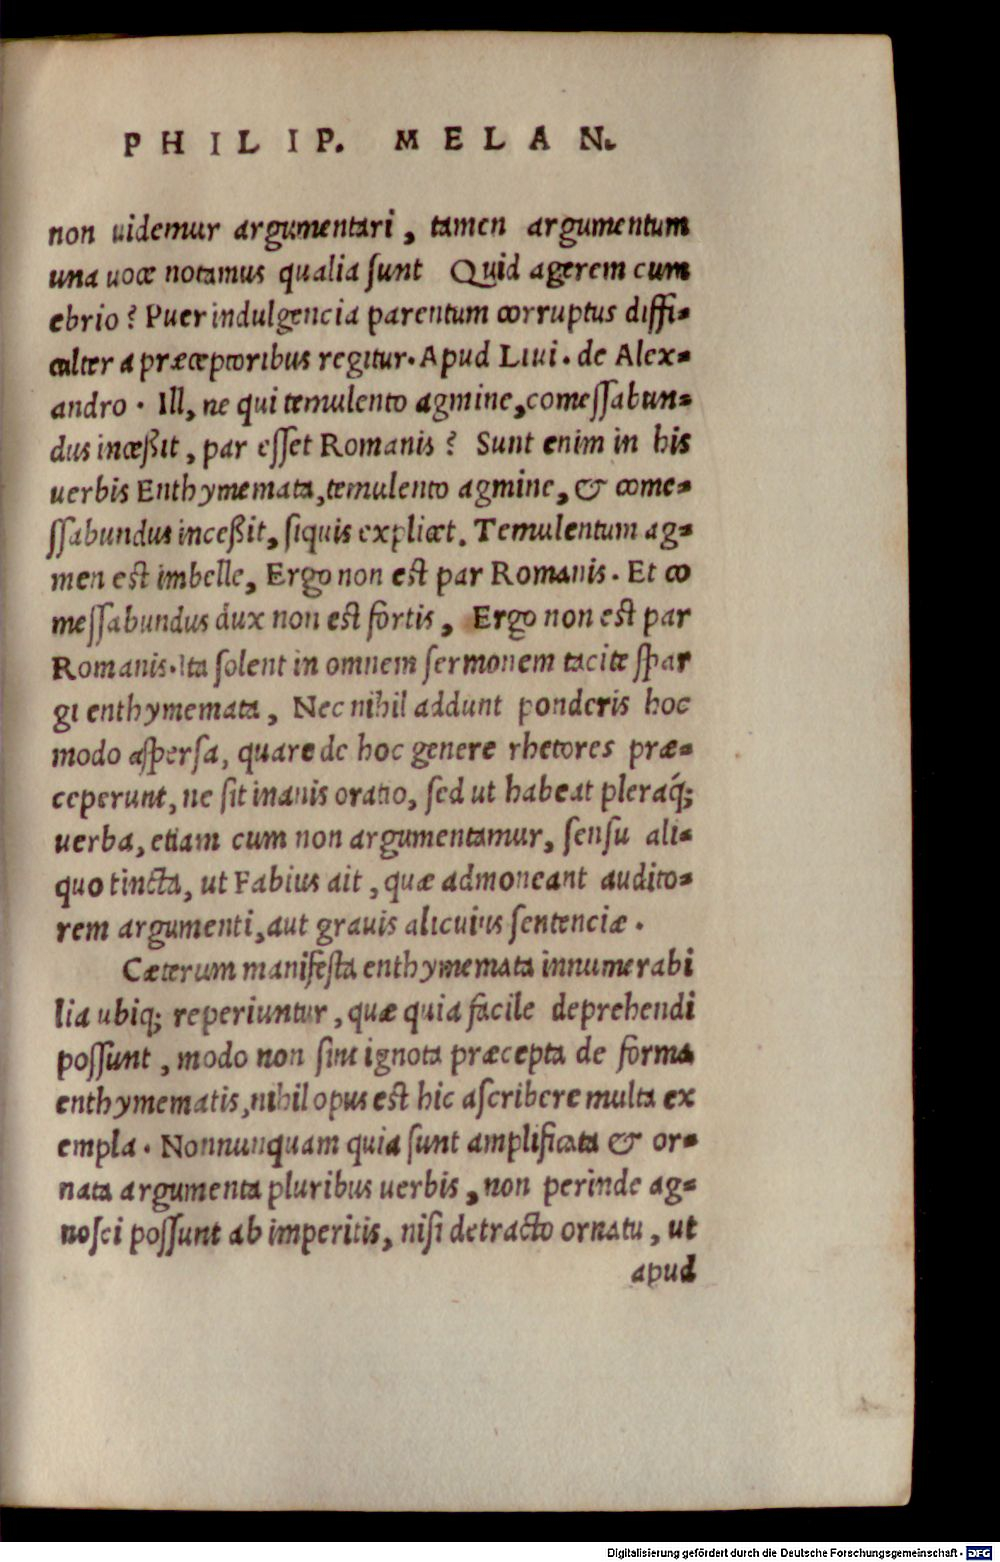 PHILIP. MELAN.
non uidemur argumentari, tamen argumentum
una uoce notamus qualia ſunt Quid agerem cum
ebrio? Puer indulgencia parentum corruptus diffi-
culter a præceptoribus regitur. Apud Liui. de Alex-
andro. Ill, ne qui temulento agmine, comeſſabun-
dus inceßit, par eſſet Romanis? Sunt enim in his
uerbis Enthymemata, temulento agmine, & come-
ſſabundus inceßit, ſiquis explicet. Temulentum ag-
men est imbelle, Ergo non est par Romanis. Et co
meſſabundus dux non est fortis, Ergo non est par
Romanis. Ita ſolent in omnem ſermonem tacite ſpar
gi enthymemata, Nec nihil addunt ponderis hoc
modo aſperſa, quare de hoc genere rhetores præ-
ceperunt, ne ſit inanis oratio, ſed ut habeat pleraq́;
uerba, etiam cum non argumentamur, ſenſu ali-
quo tincta, ut Fabius ait, quæ admoneant audito-
rem argumenti, aut grauis alicuius ſentenciæ.
Cæterum manifeſta enthymemata innumerabi
lia ubiq; reperiuntur, quæ quia facile deprehendi
poſſunt, modo non ſint ignota præcepta de forma
enthymematis, nihil opus est hic aſcribere multa ex
empla. Nonnunquam quia ſunt amplificata & or-
nata argumenta pluribus uerbis, non perinde ag-
noſci poſſunt ab imperitis, niſi detracto ornatu, ut
apud
Digitalisierung gefördert durch die Deutsche Forschungsgemeinschaft - DFG